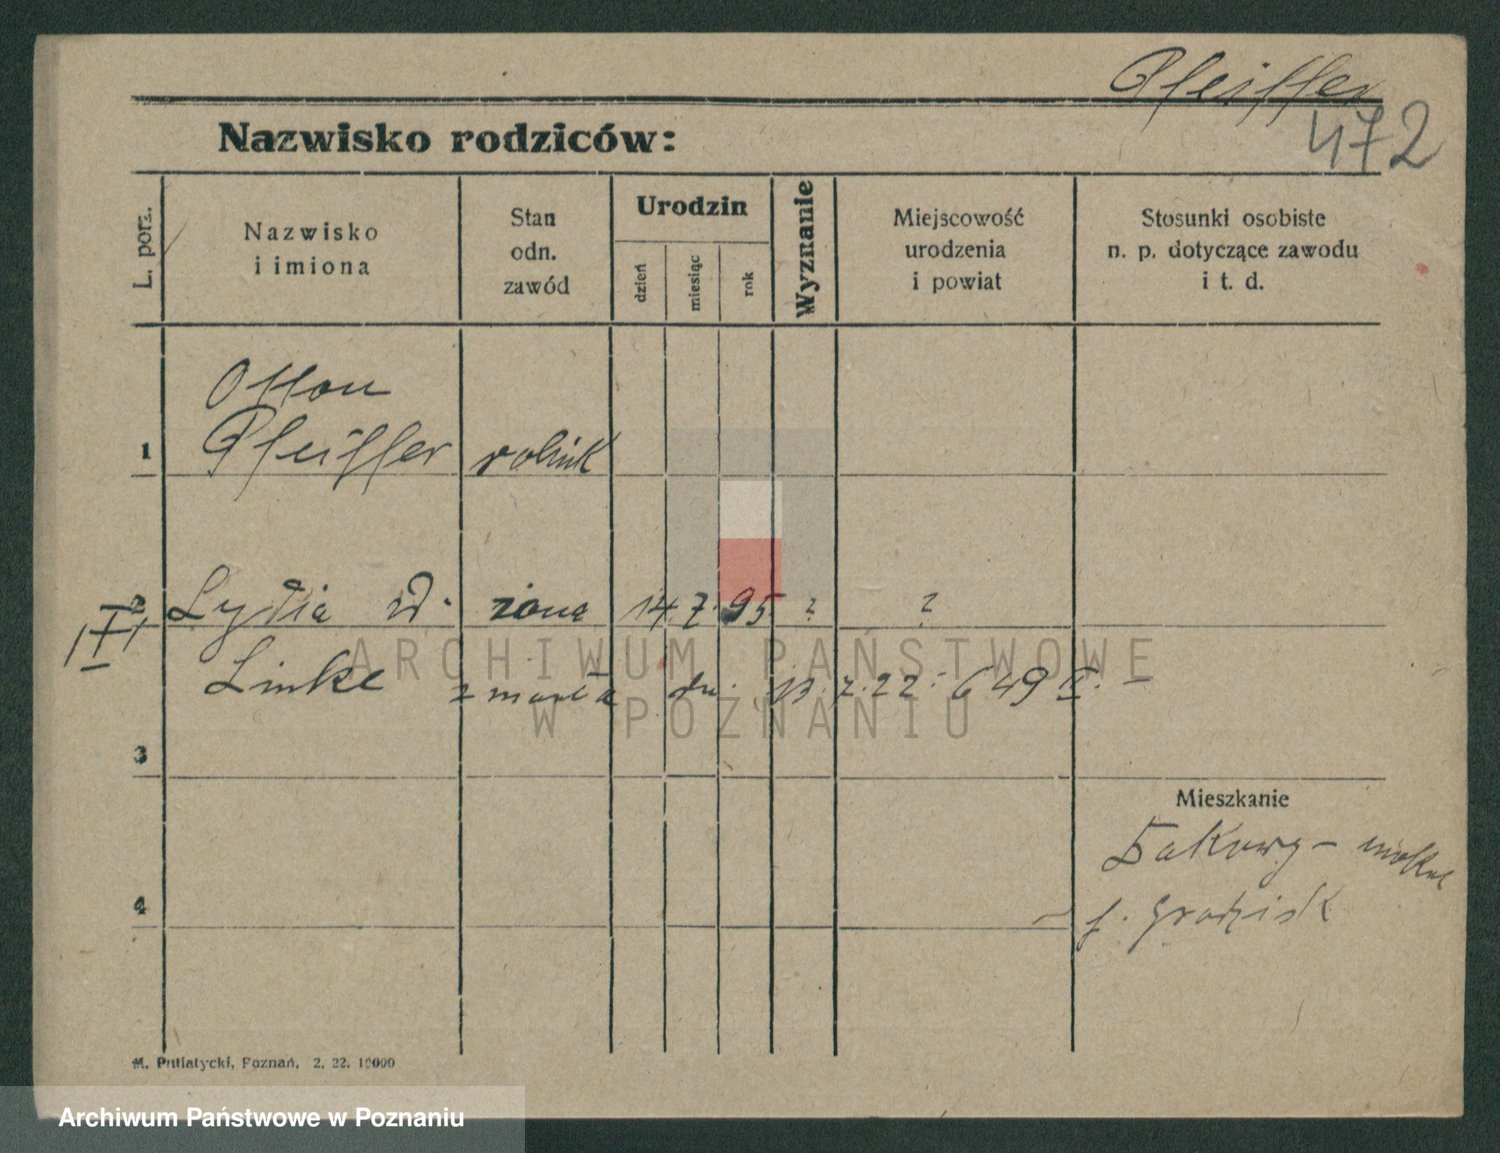 Pfeiffer
472
Nazwisko rodziców:
L. porz.
Nazwisko
i imiona
Stan
odn.
zawód
Urodzin
dzień
miesiąc
rok
Wyznanie
Miejscowość
urodzenia
i powiat
Stosunki osobiste
n. p. dotyczące zawodu
i t. d.
Otton
1 Pfeiffer rolnik
2 Lydia żona 14. 7. 95 ? ?
Linke zmarła dn. 13. 7. 22. 649
3
Mieszkanie
4
p. Grodzisk
M. Putiatycki, Poznań, 2. 22. 10000
ARCHIWUM PAŃSTWOWE
W POZNANIU
Archiwum Państwowe w Poznaniu